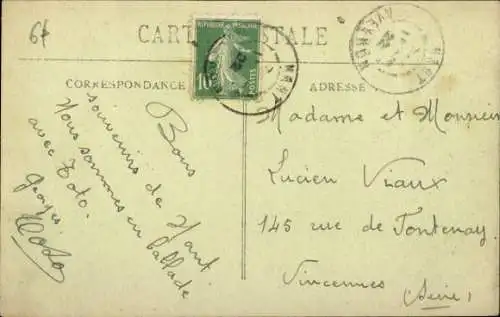 67
CARTE POSTALE
10
POSTES
NANT
NANT
AVEYRON
CORRESPONDANCE
ADRESSE
Bons
souvenirs de Nant.
Nous sommes en ballade
avec Toto.
Madame et Monsieur
Lucien Viaux
145 rue de Fontenay
Vincennes
(Seine)